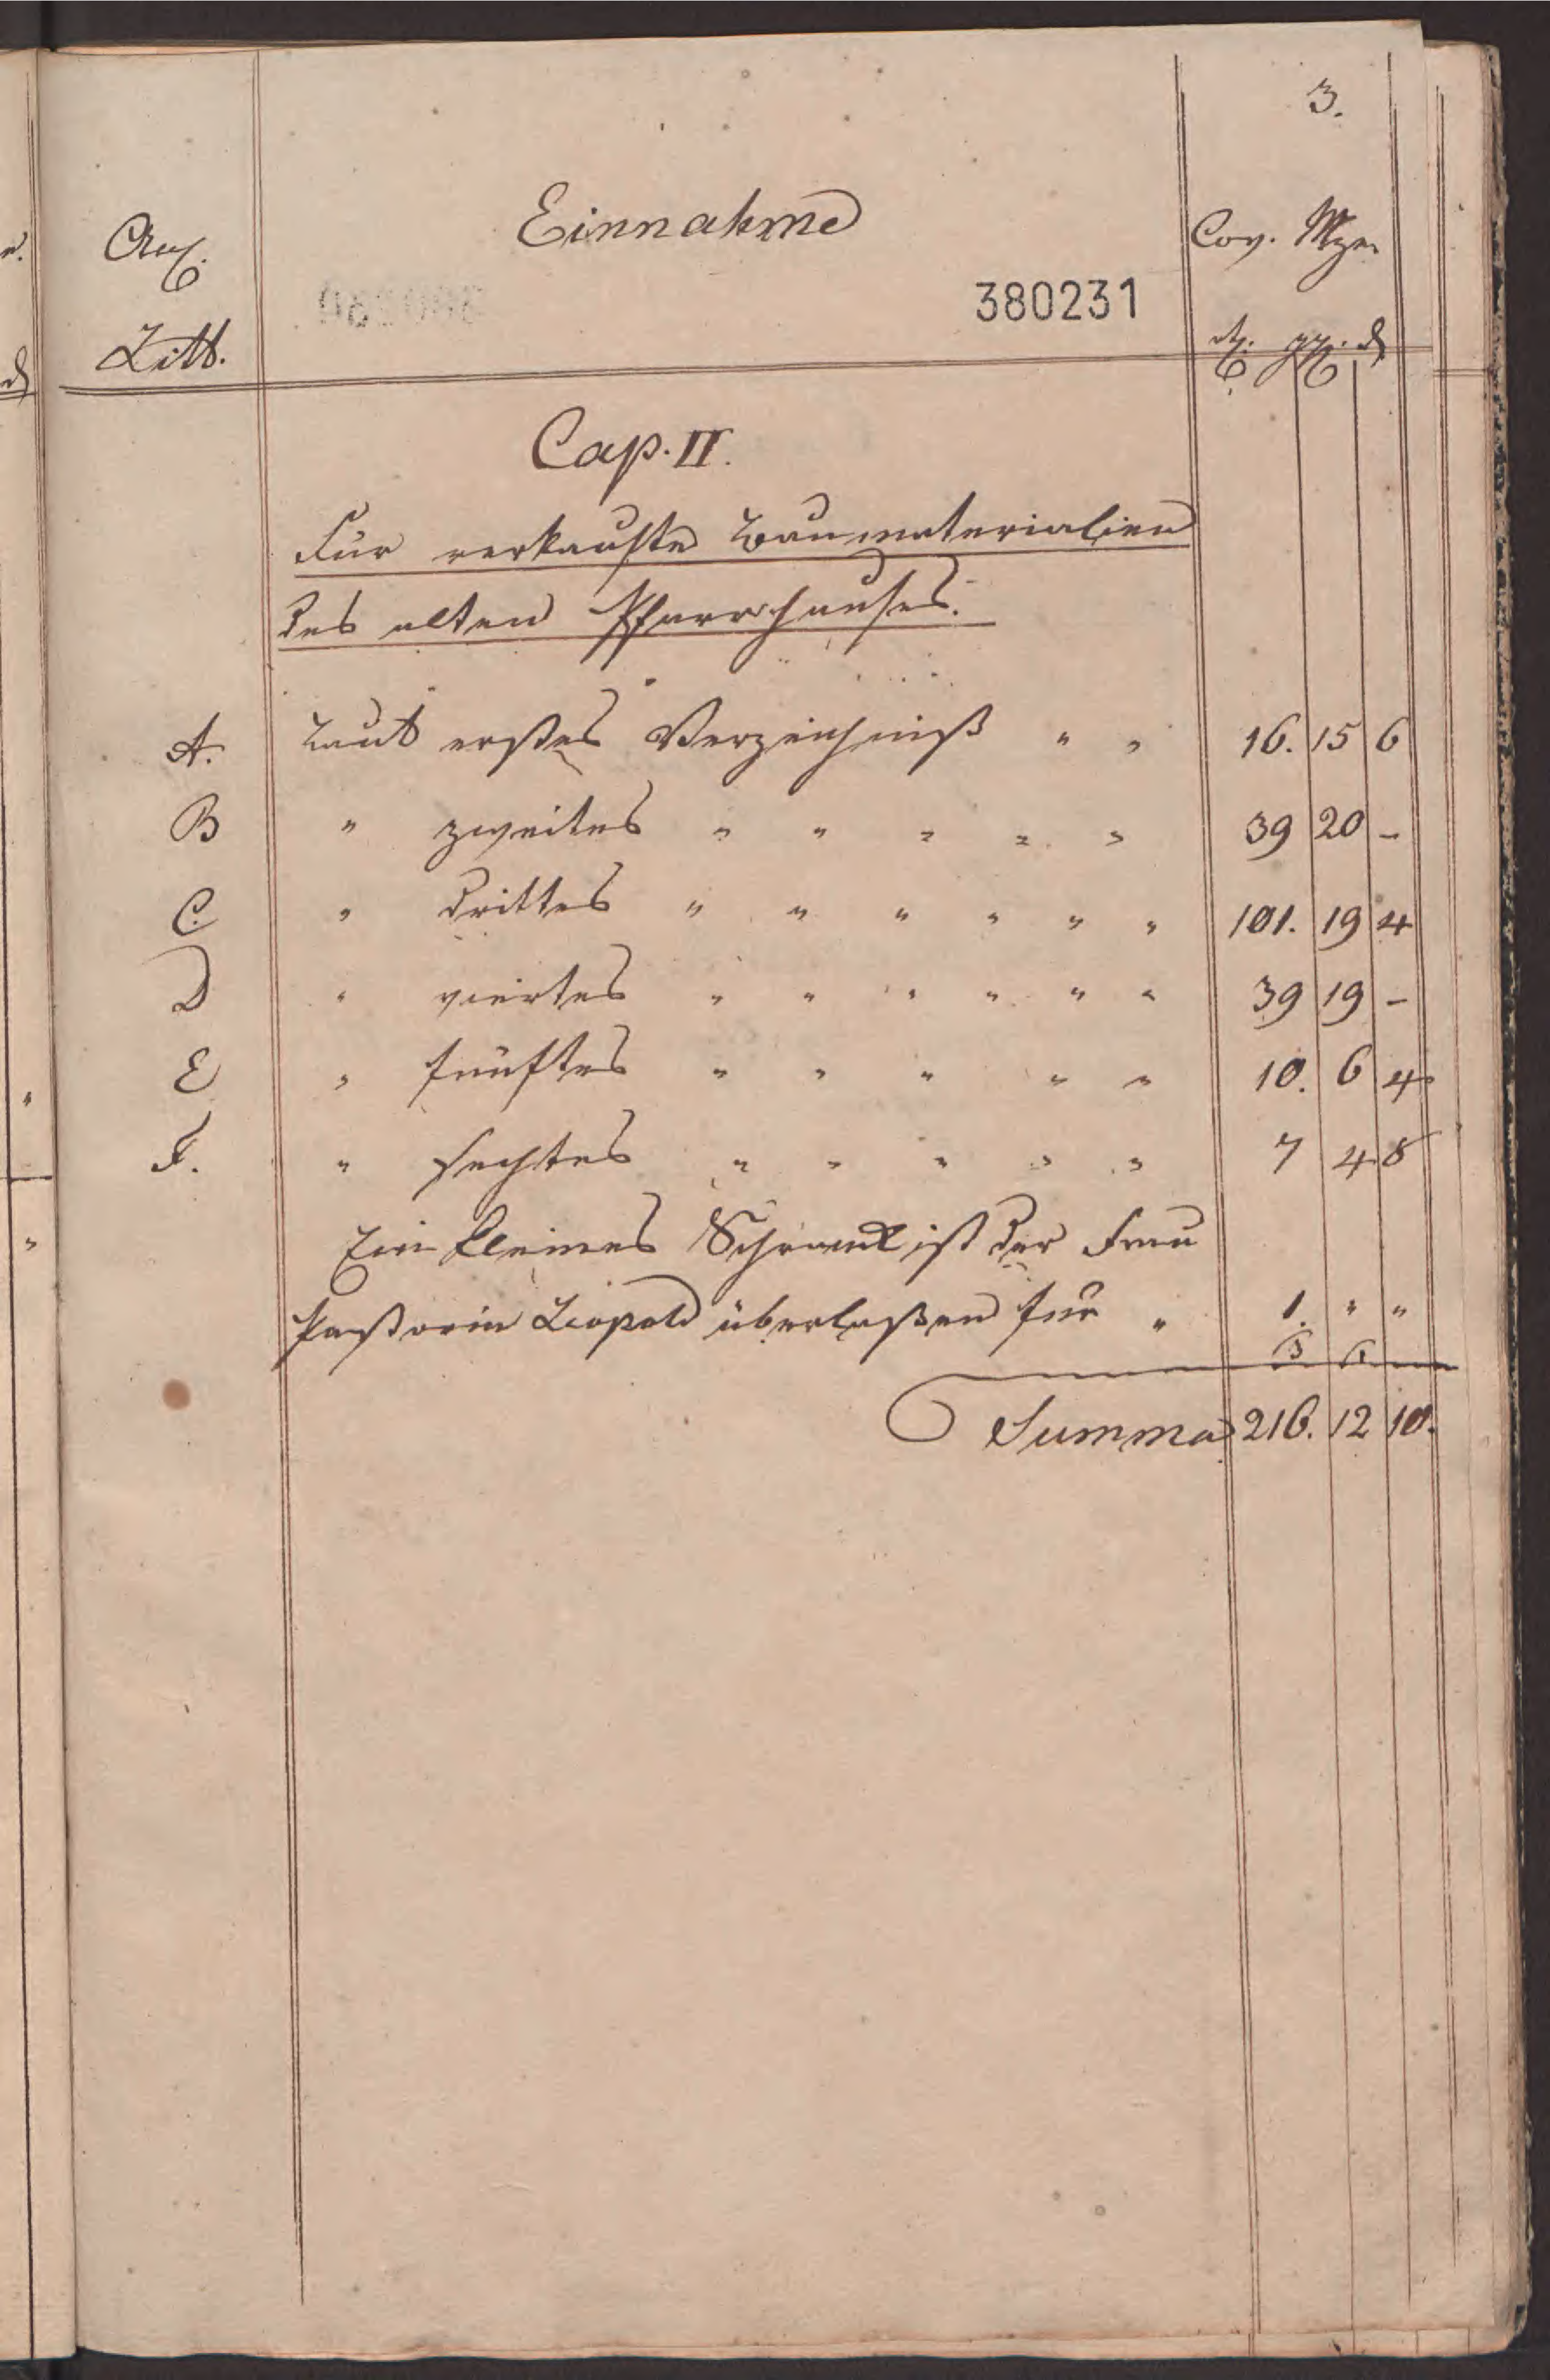 3.
Einnahme
Anl.
Litt.
Cov. Mze
380231
rth. ggl. d
Cap. II.
Für verkaufte Baumaterialien
des alten Pfarrhauses.
A. Laut erstes Verzeichniß " " 16. 15 6
B " zweites " " " " " 39 20 -
C. " drittes " " " " " " 101. 19 4
D " viertes " " " " " " 39 19 -
E " fünftes " " " " " 10. 6 4
F. " sechtes " " " " " 7 4 8
Ein kleines Schrank ist der Frau
Pastorin Leopold überlaßen für " 1. " "
Summa 216. 12 10.